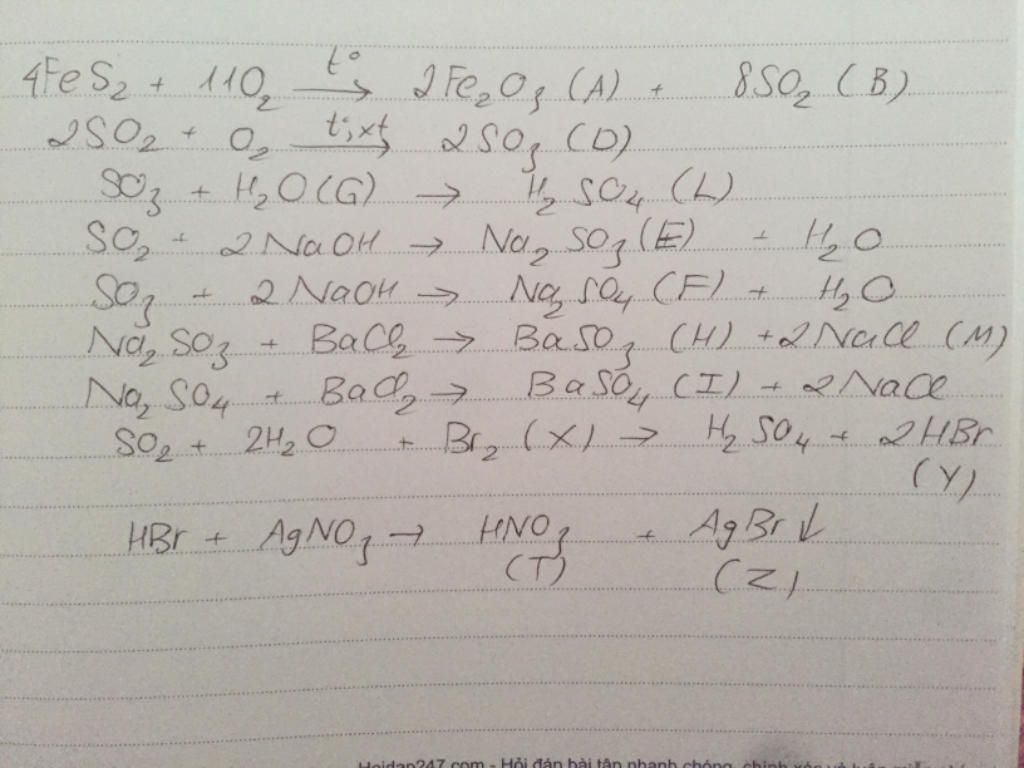 4FeS₂ + 11O₂ —t°→ 2Fe₂O₃ (A) + 8SO₂ (B)
2SO₂ + O₂ —t°, xt→ 2SO₃ (D)
SO₃ + H₂O (G) → H₂SO₄ (L)
SO₂ + 2NaOH → Na₂SO₃ (E) + H₂O
SO₃ + 2NaOH → Na₂SO₄ (F) + H₂O
Na₂SO₃ + BaCl₂ → BaSO₃ (H) + 2NaCl (M)
Na₂SO₄ + BaCl₂ → BaSO₄ (I) + 2NaCl
SO₂ + 2H₂O + Br₂ (X) → H₂SO₄ + 2HBr
(Y)
HBr + AgNO₃ → HNO₃ + AgBr↓
(T) (Z)
Hoidap247.com - Hỏi đáp bài tập nhanh chóng, chính xác và luôn miễn phí